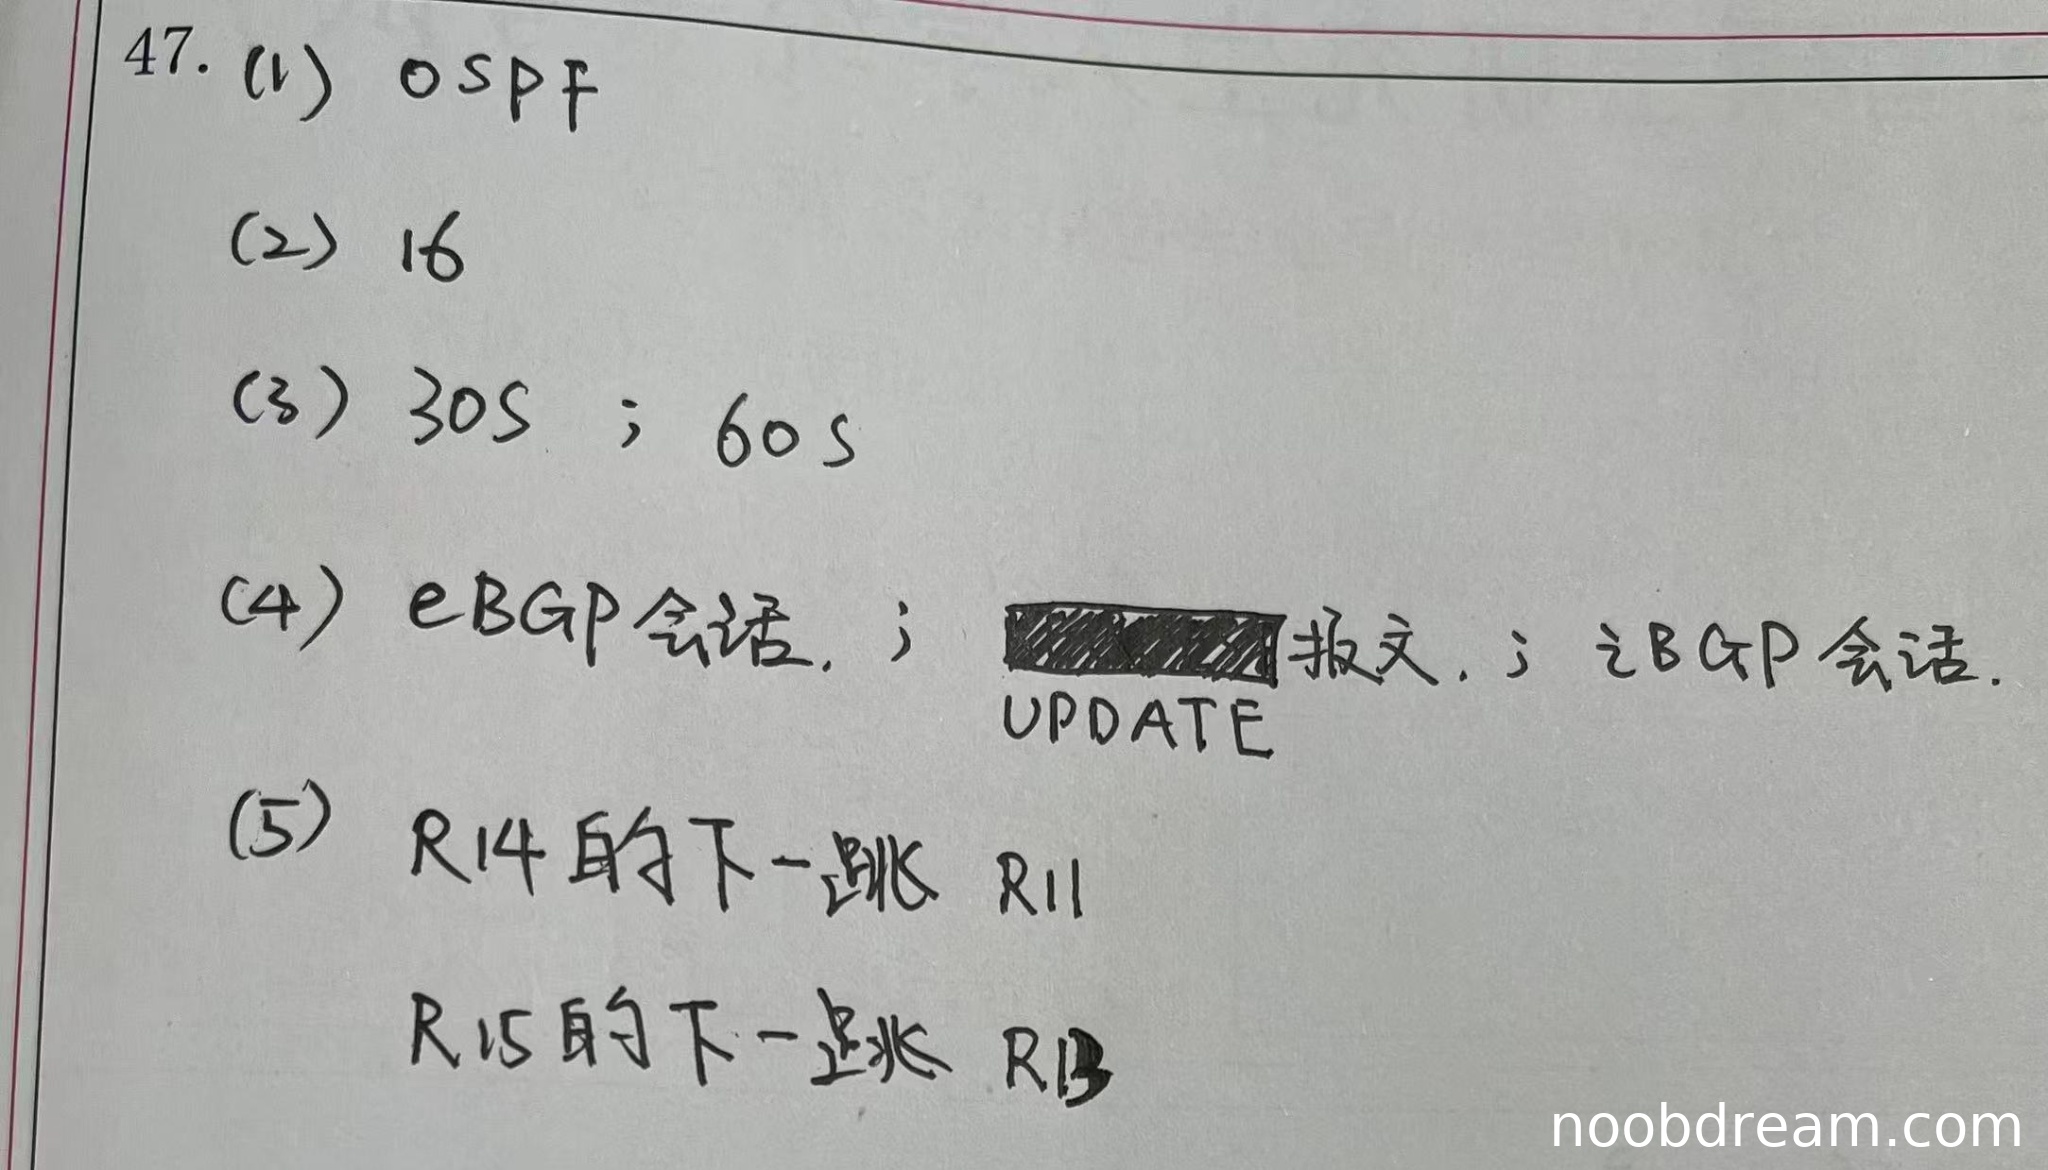 47. (1) OSPF
(2) 16
(3) 30S ; 60S
(4) eBGP会话. ; 报文. ; iBGP会话.
UPDATE
(5) R14的下一跳 R11
R15的下一跳 R13
noobdream.com